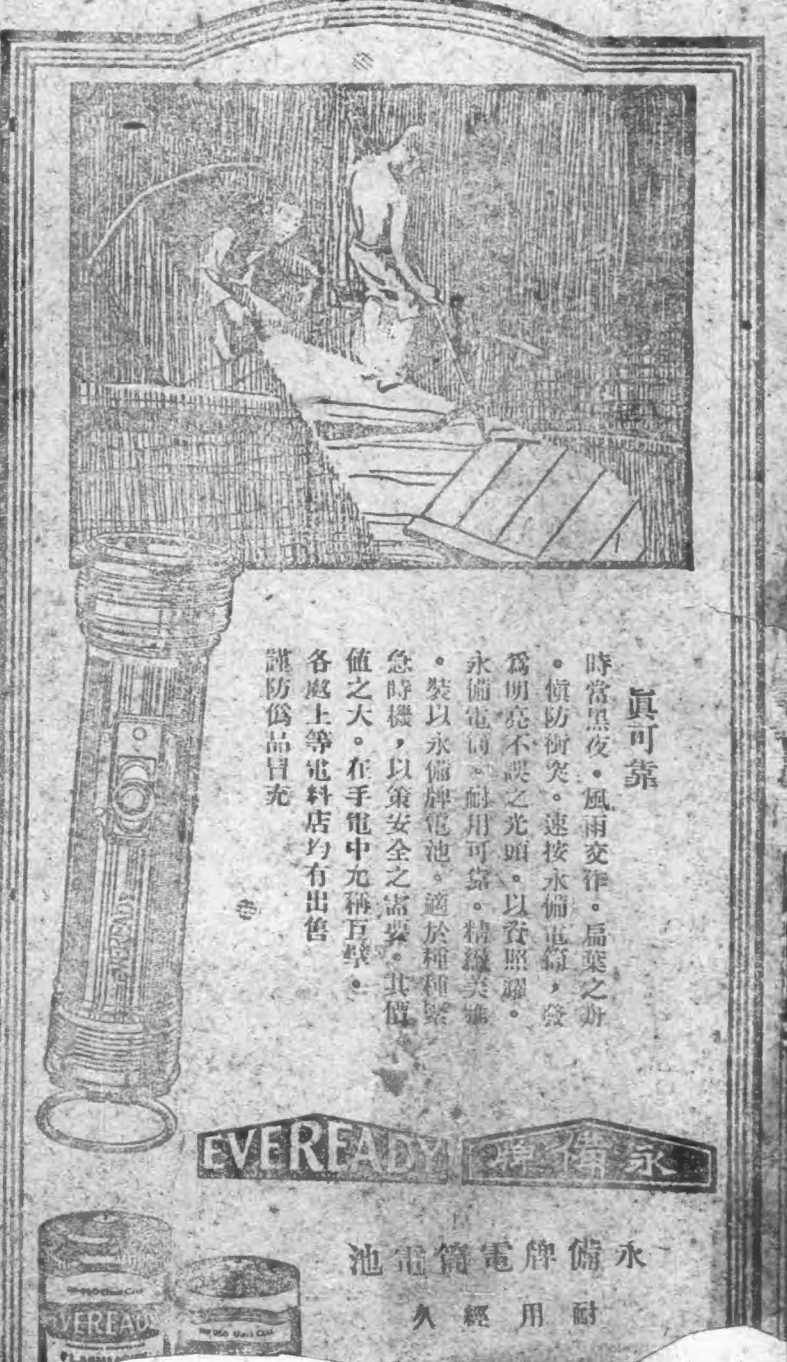 眞可靠
時常黑夜。風雨交作。扁葉之舟
。愼防衝突。速按永備電筒,發
爲明亮不誤之光頭。以資照耀。
永備電筒。耐用可靠。精緻美雅
。裝以永備牌電池。適於種種緊
急時機,以策安全之需要。其價
値之大。在手電中尤稱巨擘。
各處上等電料店均有出售
謹防僞品冒充
EVEREADY
EVEREADY
永備牌
永備牌電筒電池
耐用經久
EVEREADY